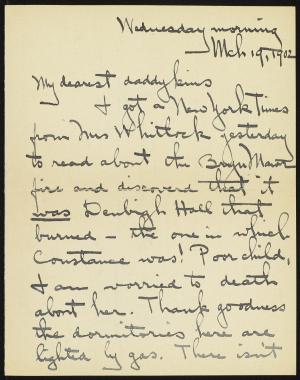 Wednesday morning
Mch. 19, 1902
My dearest daddykins
I got a New York Times
from Mrs Whitlock yesterday
to read about the Bryn Mawr
fire and discovered that it
was Denbigh Hall that
burned – the one in which
Constance was! Poor child,
I am worried to death
about her. Thank goodness
the dormitories here are
lighted by gas. There isn't